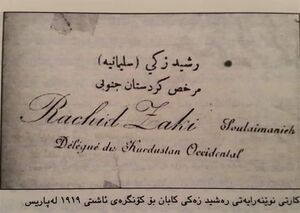 رشيد زكي (سليمانيه)
مرخص كردستان جنوبى
Rachid Zaki Souleimanieh
Délégué du Kurdustan Occidental
کارتی نوێنەرایەتی رەشید زەکی کابان بۆ کۆنگرەی ئاشتی ١٩١٩ لەپاریس